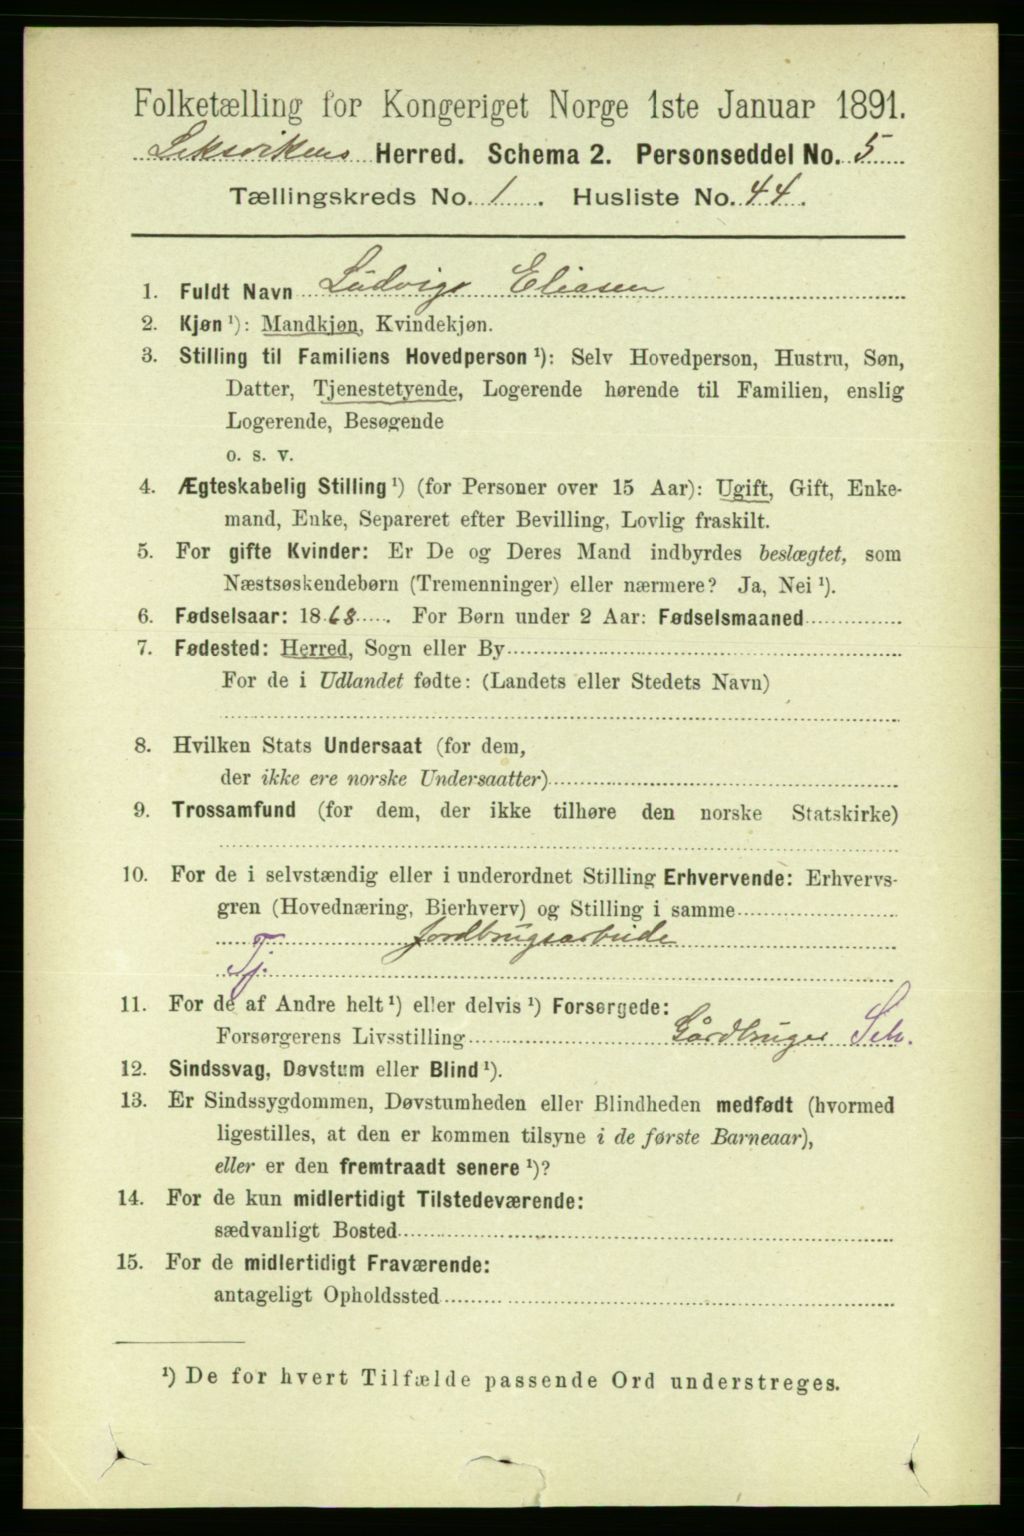 Folketælling for Kongeriget Norge 1ste Januar 1891.
Leksvikens Herred. Schema 2. Personseddel No. 5
Tællingskreds No. 1. Husliste No. 44.
1. Fuldt Navn Ludvig Eliasen
2. Kjøn ¹): Mandkjøn, Kvindekjøn.
3. Stilling til Familiens Hovedperson ¹): Selv Hovedperson, Hustru, Søn,
Datter, Tjenestetyende, Logerende hørende til Familien, enslig
Logerende, Besøgende
o. s. v.
4. Ægteskabelig Stilling ¹) (for Personer over 15 Aar): Ugift, Gift, Enke-
mand, Enke, Separeret efter Bevilling, Lovlig fraskilt.
5. For gifte Kvinder: Er De og Deres Mand indbyrdes beslægtet, som
Næstsøskendebørn (Tremenninger) eller nærmere? Ja, Nei ¹).
6. Fødselsaar: 1868. For Børn under 2 Aar: Fødselsmaaned
7. Fødested: Herred, Sogn eller By
For de i Udlandet fødte: (Landets eller Stedets Navn)
8. Hvilken Stats Undersaat (for dem,
der ikke ere norske Undersaatter)
9. Trossamfund (for dem, der ikke tilhøre den norske Statskirke)
10. For de i selvstændig eller i underordnet Stilling Erhvervende: Erhvervs-
gren (Hovednæring, Bierhverv) og Stilling i samme
Jordbrugsarbeide
Tj.
11. For de af Andre helt ¹) eller delvis ¹) Forsørgede:
Forsørgerens Livsstilling Gårdbruger Selv.
12. Sindssvag, Døvstum eller Blind ¹).
13. Er Sindssygdommen, Døvstumheden eller Blindheden medfødt (hvormed
ligestilles, at den er kommen tilsyne i de første Barneaar),
eller er den fremtraadt senere ¹)?
14. For de kun midlertidigt Tilstedeværende:
sædvanligt Bosted
15. For de midlertidigt Fraværende:
antageligt Opholdssted
¹) De for hvert Tilfælde passende Ord understreges.